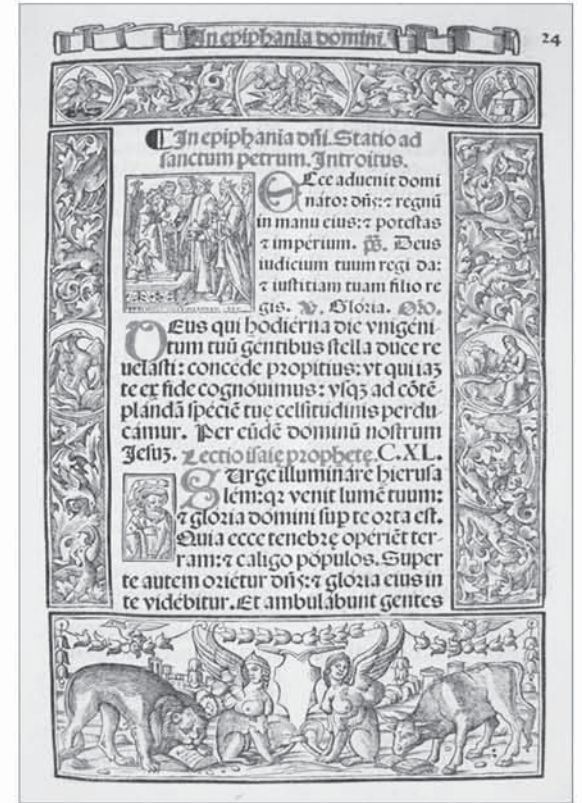 In epiphania domini.
24
¶ In epiphania dñi. Statio ad
sanctum petrum. Introitus.
Ecce aduenit domi
nátor dñs: ⁊ regnũ
in manu eius: ⁊ potestas
⁊ impérium. p̃s. Deus
iudícium tuum regi da:
⁊ iustítiam tuam filio re
gis. ℣. Glória. Oŕo.
DEus qui hodiérna die vnigéni-
tum tuũ géntibus stella duce re
uelásti: concéde propítius: vt qui iaꝫ
te ex fide cognóuimus: vsqꝫ ad cõtẽ
plándã spéciẽ tuę celsitúdinis perdu-
cámur. Per eũdẽ dominũ nostrum
Jesuꝫ. Lectio isaię prophetę. C.XL.
SUrge illumináre hierusa
lém: qꝛ venit lumẽ tuum:
⁊ glória domini sup te orta est.
Quia ecce tenebrę opériẽt ter-
ram: ⁊ calígo pópulos. Super
te autem oriétur dñs: ⁊ glória eius in
te vidébitur. Et ambulábunt gentes